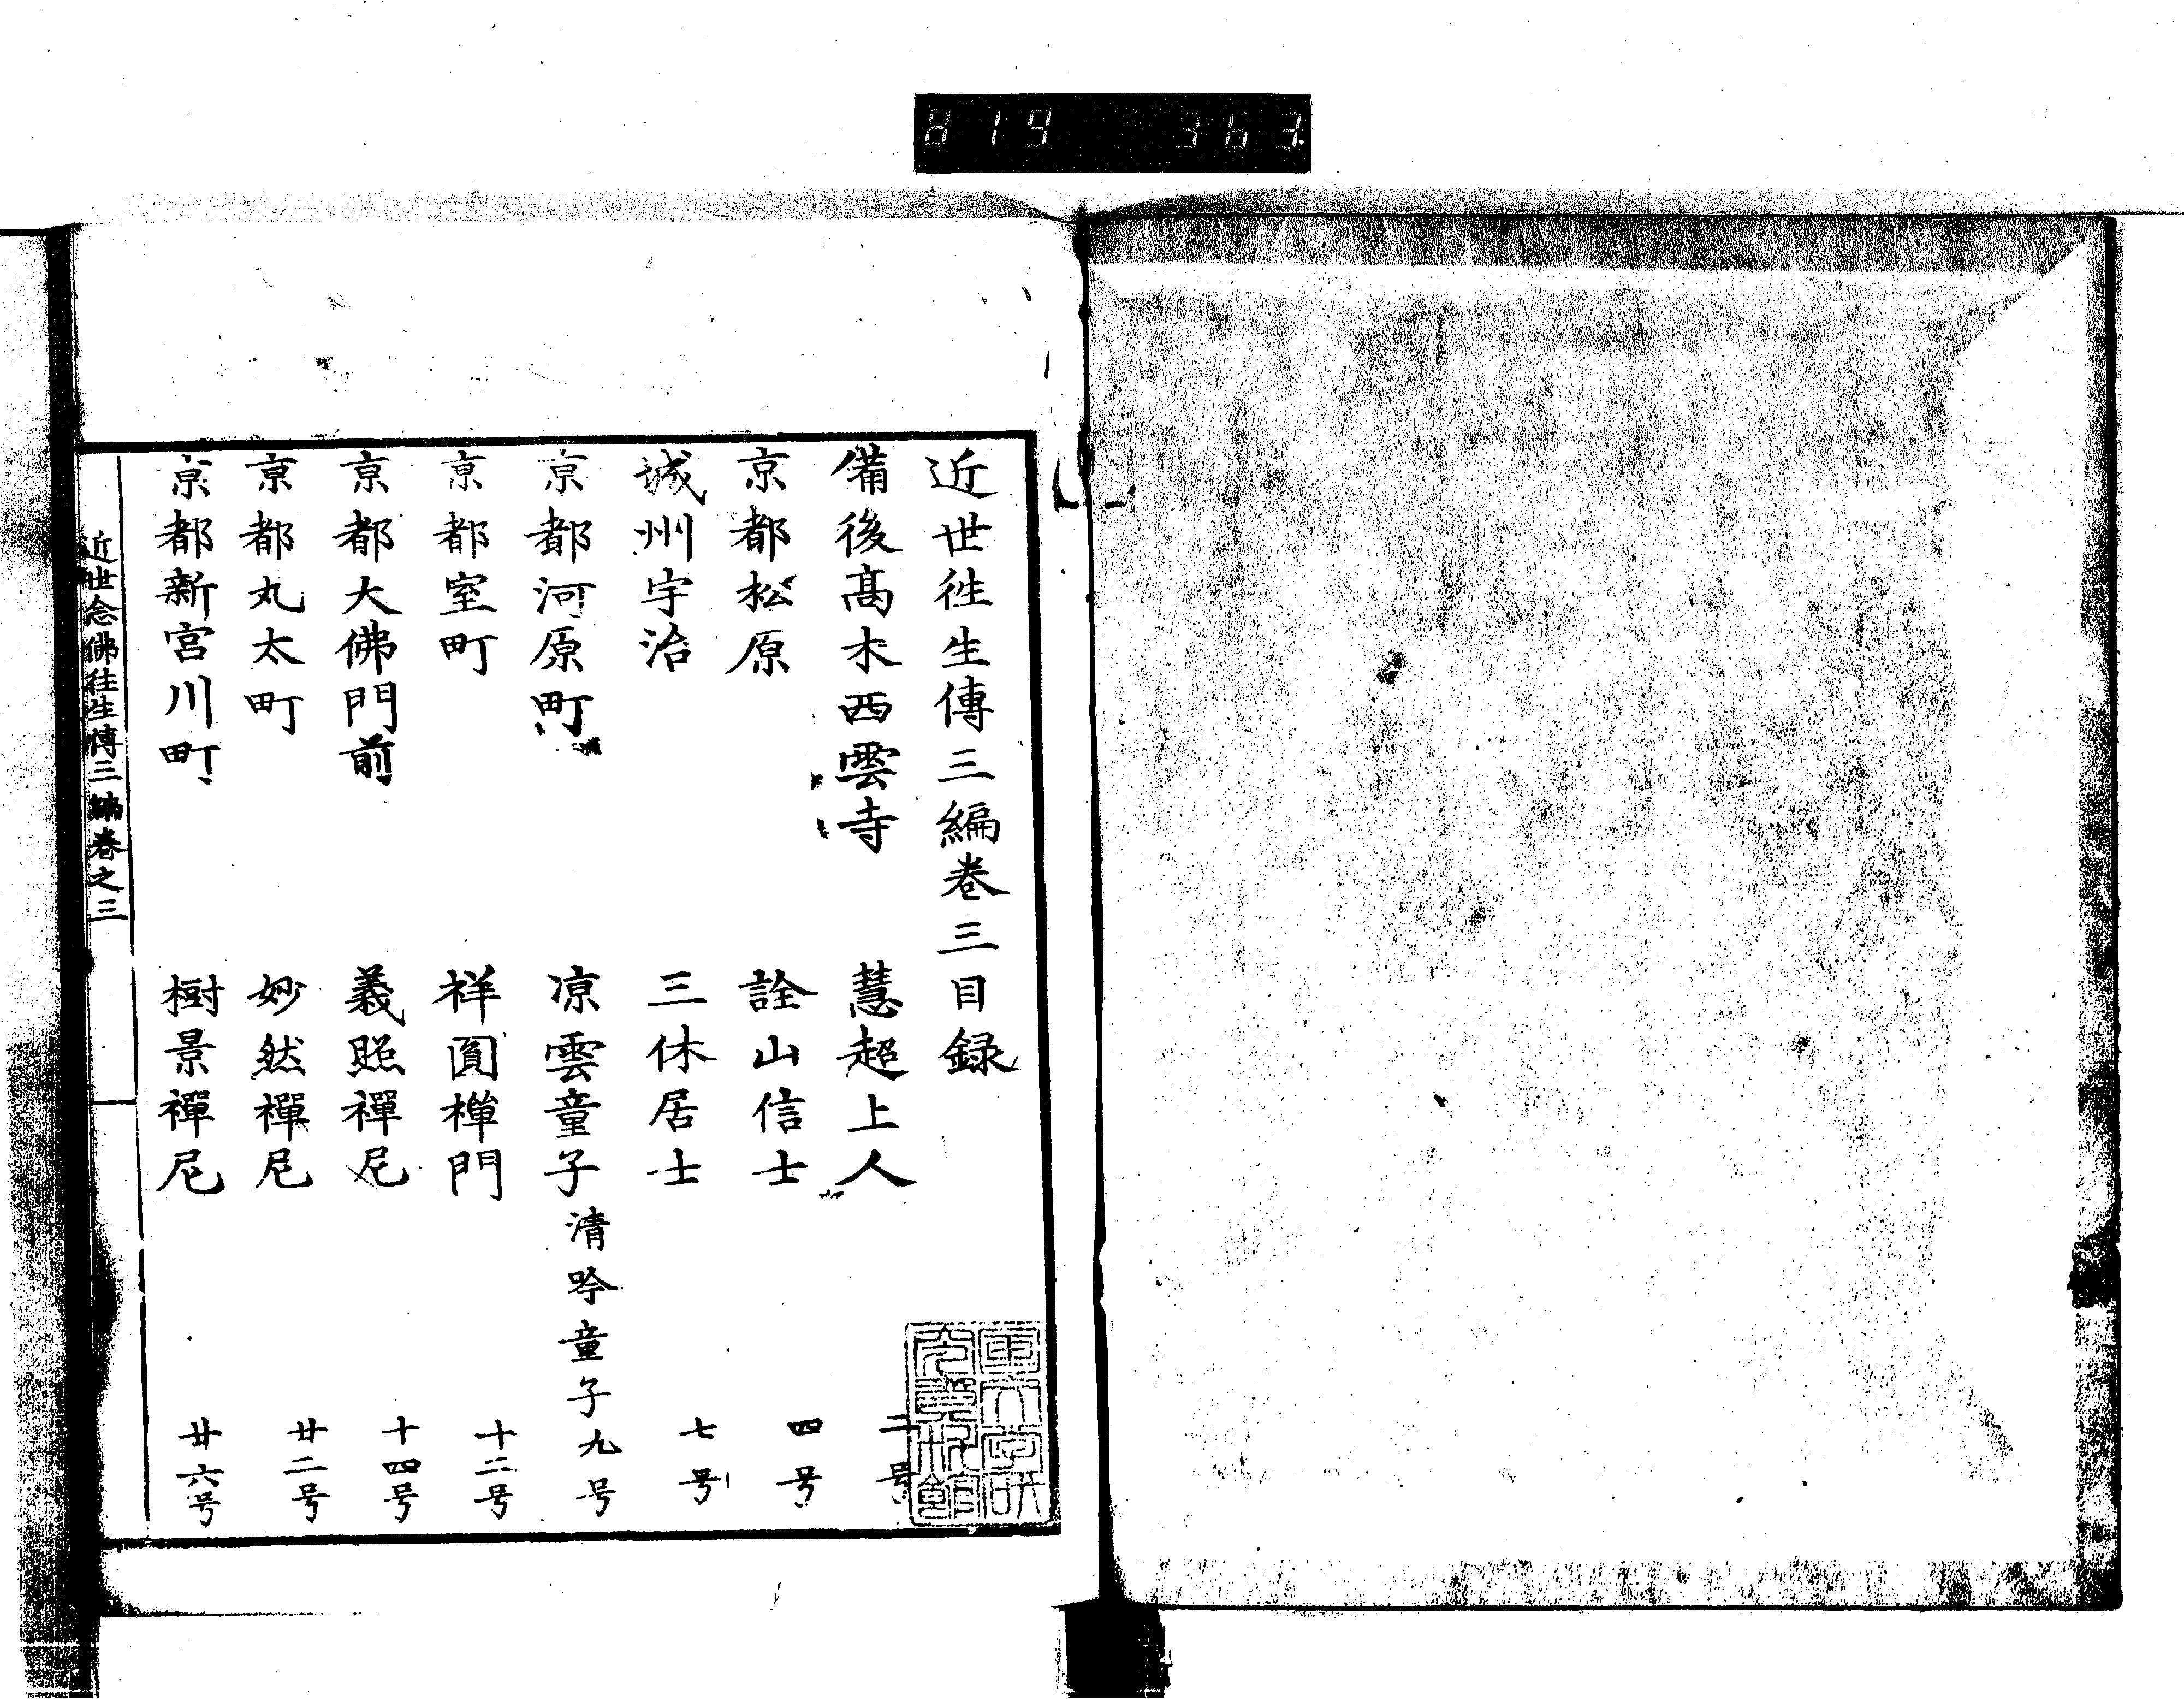 819 363.
近世徃生傳三編卷三目録
備後髙木西雲寺 慧超上人 二号
京都松原 詮山信士 四号
城州宇治 三休居士 七号
京都河原町 凉雲童子 清吟童子 九号
京都室町 祥圓禅門 十二号
京都大佛門前 義照禪尼 十四号
京都丸太町 妙然禪尼 廿二号
京都新宮川町 樹景禪尼 廿六号
近世念佛往生傳三編卷之三